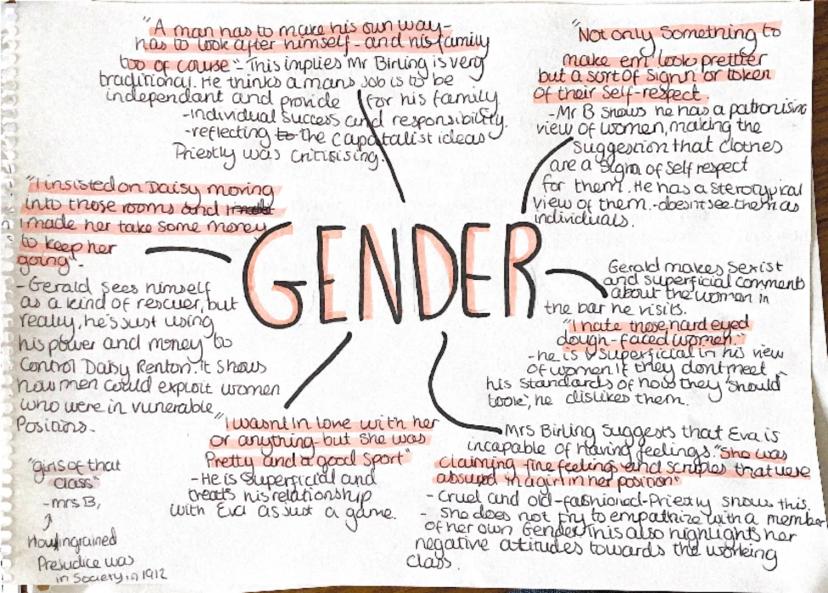 "A man has to make his own way-
has to look after himself - and his family
too of cause". This implies Mr Birling is very
traditional. He thinks a mans job is to be
independant and provide for his family
- Individual success and responsibility.
- reflecting to the capatalist ideas
Priestly was critisising.
"Not only something to
make em look prettier
but a sort of sign n or token
of their self-respect.
- Mr B shows he has a patronising
view of women, making the
suggestion that clothes
are a sign of self respect
for them. He has a sterotypical
view of them - doesnt see them as
individuals.
"I insisted on Daisy moving
into those rooms and I made
I made her take some money
to keep her
going".
- Gerald sees himself
as a kind of rescuer, but
really, he's just using
his power and money to
Control Daisy Renton. It shows
how men could exploit women
who were in vunerable
Posians.
GENDER
Gerald makes sexist
and superficial comments
about the women in
the bar he visits.
"I hate those hard eyed
dough-faced women."
- he is superficial in his view
of women If they dont meet
his standards of how they 'should
look', he dislikes them.
"I wasnt in love with her
or anything- but she was
Pretty and a good sport"
- He is superficial and
treats his relationship
with Eva as just a game.
Mrs Birling suggests that Eva is
incapable of having feelings. "She was
claiming fine feelings and scruples that were
absurd in a girl in her position"
- Cruel and old-fashioned - Priestly shows this.
- She does not try to empathize with a member
of her own Gender. This also highlights her
negative attitudes towards the working
class.
"girls of that
class"
- mrs B,
How ingrained
Prejudice was
in Society in 1912